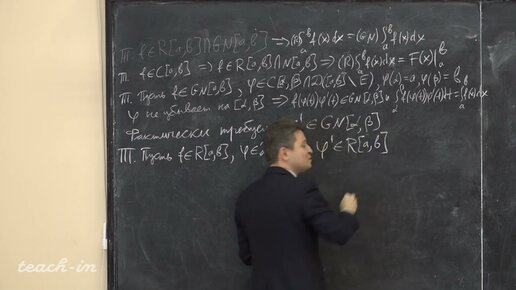 Т. f∈R[a,b]∩GN[a,b] ⇒ (R)∫_a^b f(x)dx = (GN)∫_a^b f(x)dx
Т. f∈C[a,b] ⇒ f∈R[a,b]∩N[a,b] ⇒ (R)∫_a^b f(x)dx = F(x)|_a^b
Т. Пусть f∈GN[a,b], φ∈C[α,β]∩D([α,β]\E), φ(α)=a, φ(β)=b,
φ не убывает на [α,β] ⇒ f(φ(t))φ'(t)∈GN[α,β] и ∫_α^β f(φ(t))φ'(t)dt = ∫_a^b f(x)dx
Фактически ∈GN[α,β]
Т. Пусть f∈R[a,b], φ' ∈R[a,b]
teach-in